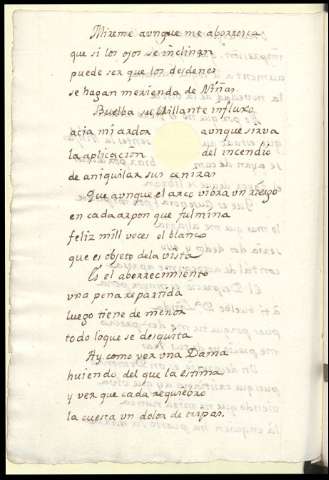 Mireme aunque me aborresca
que si los ojos se inclinan
puede ser que los desdenes
se hagan merienda de Niñas.
Buelba su brillante influxo
acia mi ardor aunque sirva
la aplicacion del incendio
de aniquilar sus cenizas
Que aunque el arco vibra un riesgo
en cada arpon que fulmina
feliz mill veces el blanco
que es objeto dela vista
Es el aborrecimiento
una pena repartida
luego tiene de menor
todo loque se desquita
Ay como ver una Dama
huiendo del que la estima
y ver que cada requiebro
la cuesta un dolor de tripas.